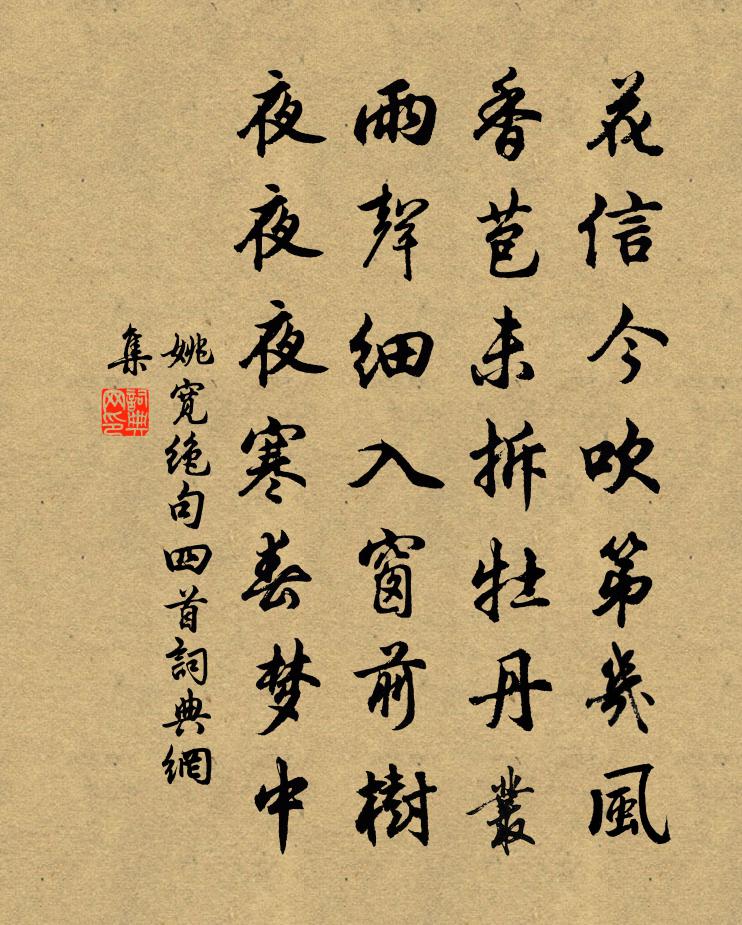 花信今吹第幾風
香苞未拆牡丹叢
雨聲細入窗前樹
夜夜夜寒春夢中
姚寬絶句四首詞典網
集
詞典
网印